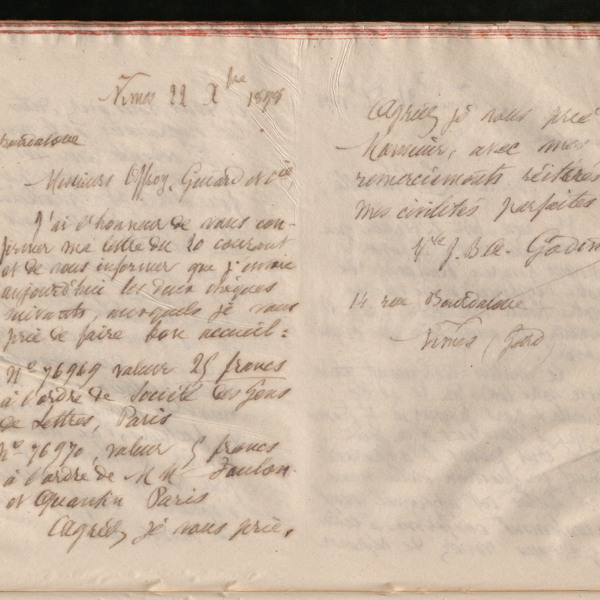 Nimes 22 Xbre 1898
Bourdaloue
Messieurs Offroy, Guiard et Cie
J'ai l'honneur de vous con-
firmer ma lettre du 20 courant
et de vous informer que j'envoie
aujourd'hui les deux chèques
suivants, auxquels je vous
prie de faire bon accueil:
No 76969 valeur 25 francs
à l'ordre de Société des Gens
de Lettres, Paris
No 76970, valeur 5 francs
à l'ordre de M M Toulon
et Quantin Paris
Agréez, je vous prie,
Agréez je vous prie
Monsieur, avec mes
remerciements réitérés
mes civilités parfaites
Vve J. B. A. Godin
14 rue Bourdaloue
Nimes (Gard)